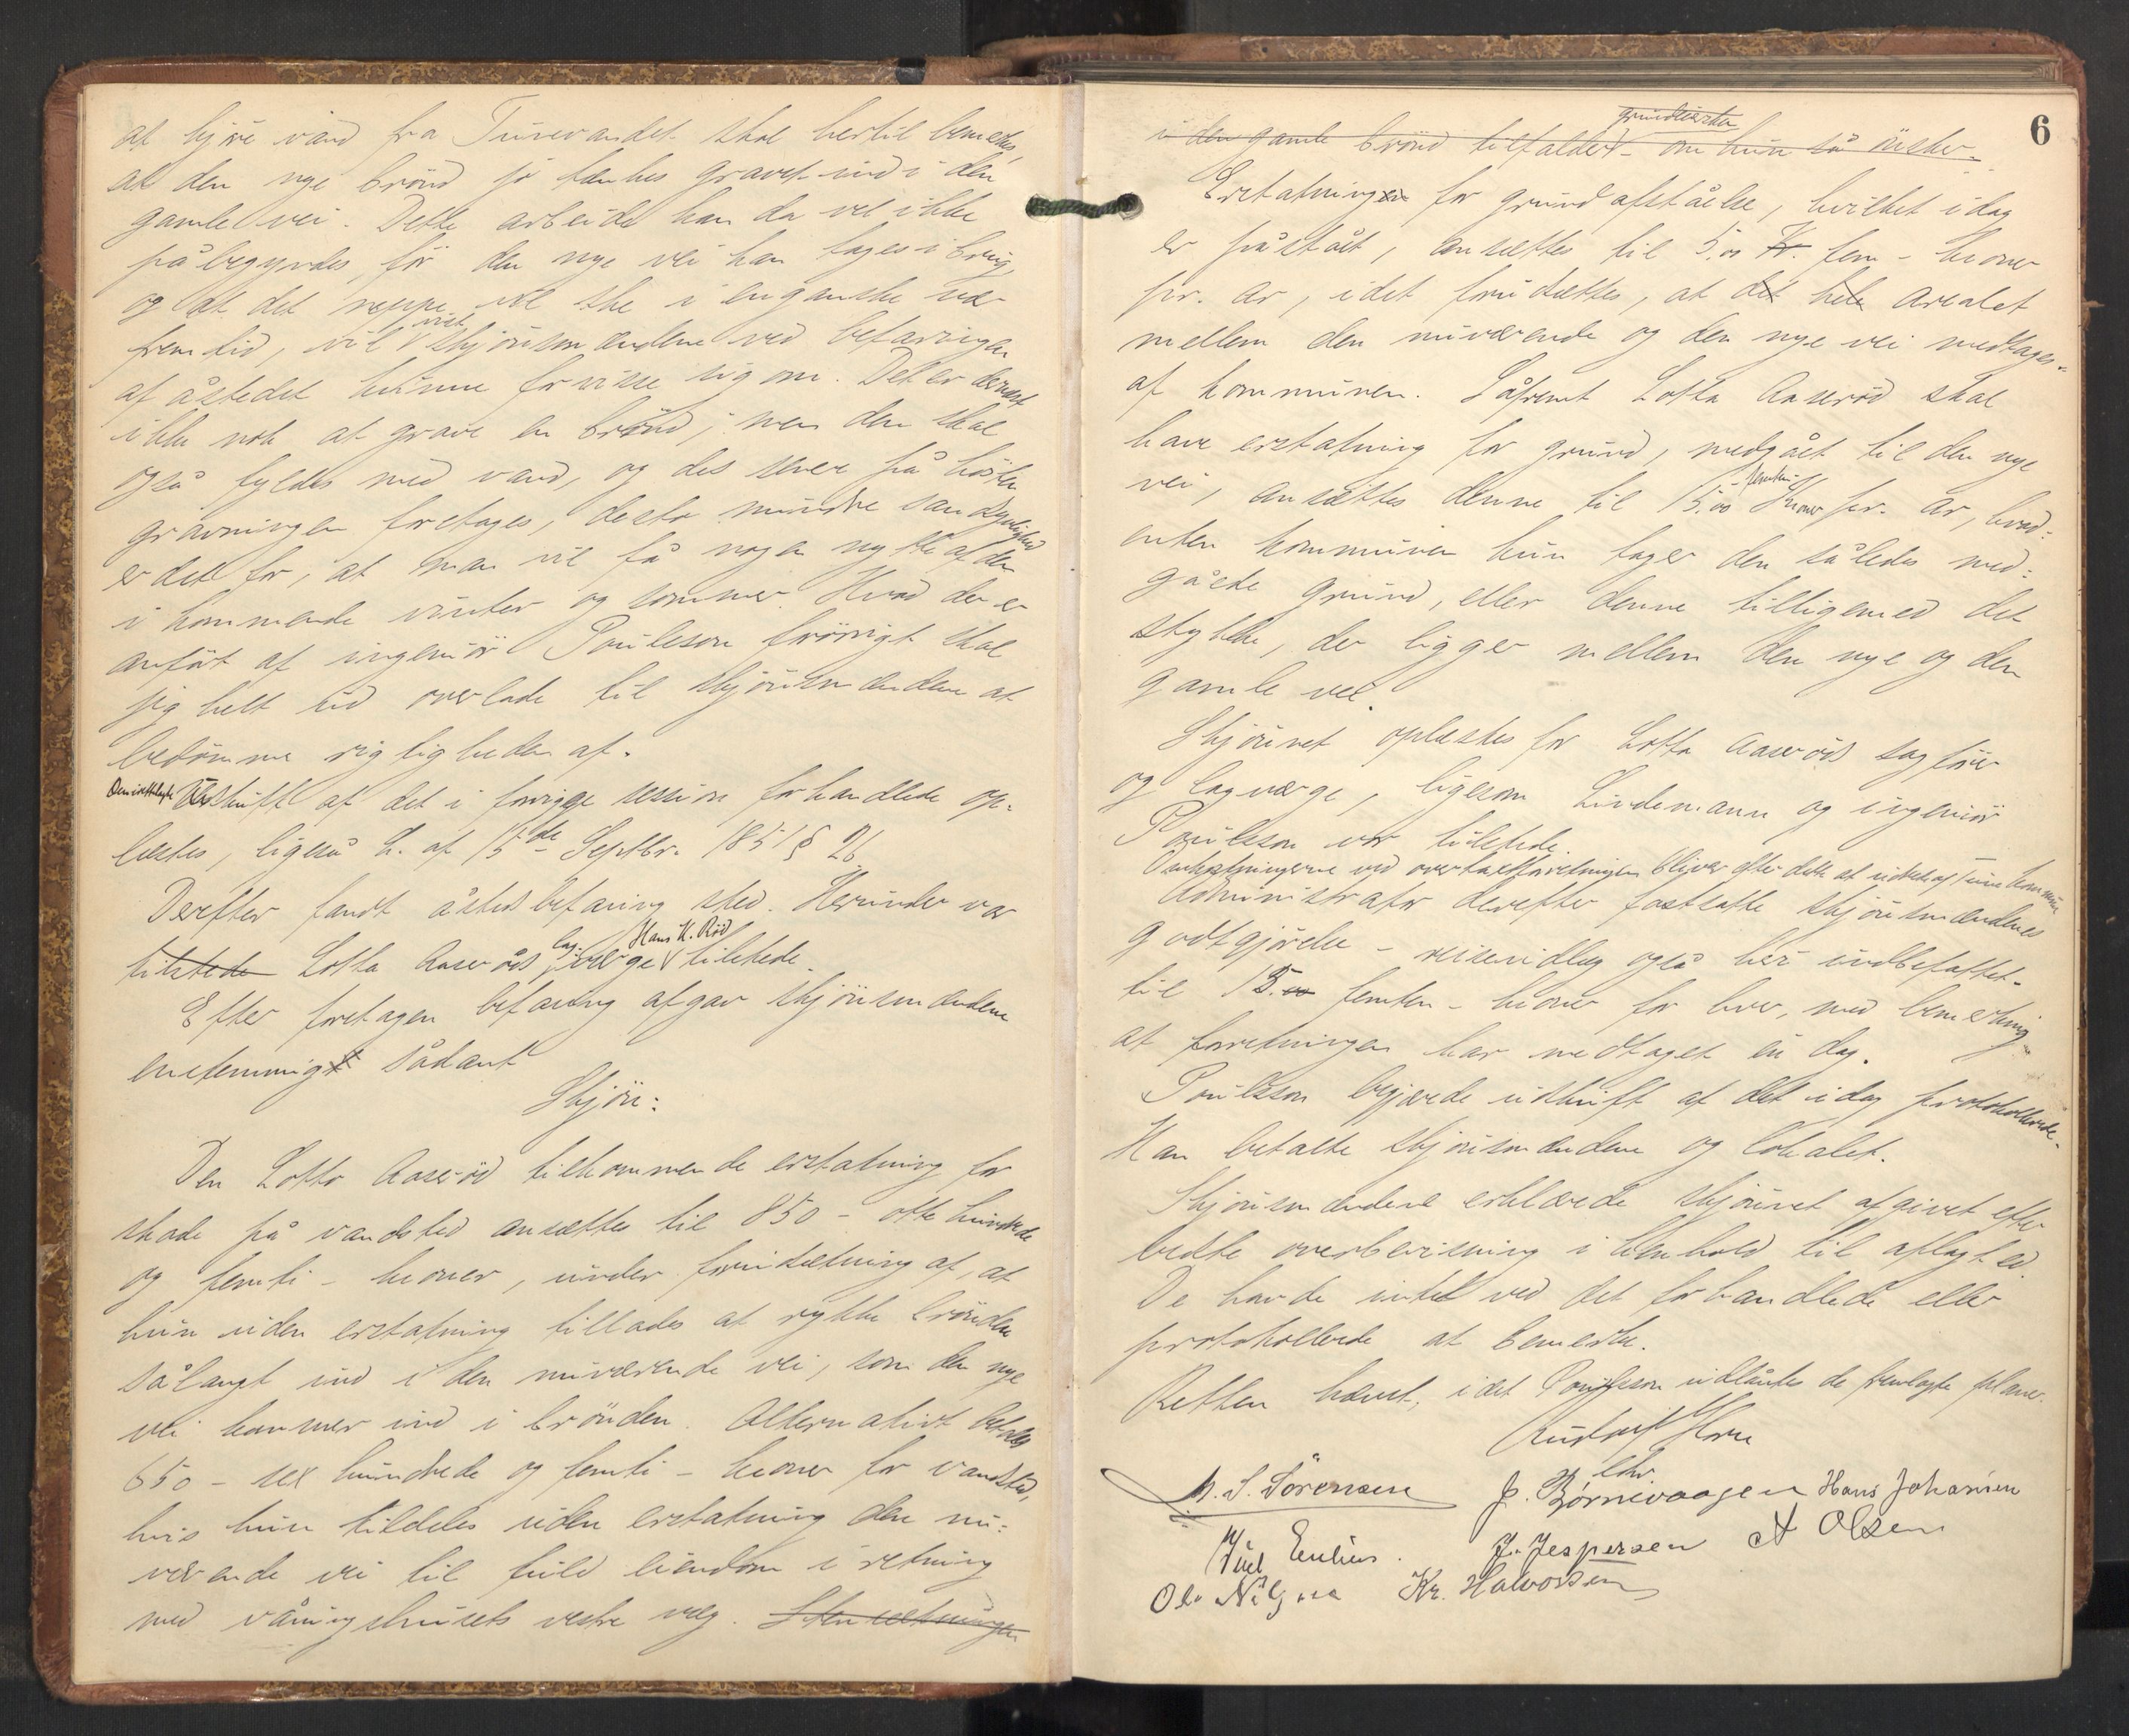 at kjøre vand fra Tunevandet skal hertil bemerkes,
at den nye brönd jo tænkes gravet ind i den
gamle vei. Dette arbeide kan da vel ikke
påbegyndes, før den nye vei kan tages i brug,
og at det neppe vil ske i en ganske nær
fremtid, vil vist skjönsmændene ved befaringen
af åstedet kunne forvisse sig om. Det er dernæst
ikke nok at grave en brönd; men den skal
også fyldes med vand, og des senere på høsten
gravningen foretages, desto mindre sandsynlighed
er det for, at man vil få nogen nytte af den
i kommende vinter og sommer. Hvad der er
anført af ingeniör Poulsson forövrigt skal
jeg helt ud overlade til skjönsmændene at
bedömme rigtigheden af.
Den indtalte Udskrift af det i forrige session forhandlede op-
læstes, ligeså L. af 15de Septbr. 1851 § 26
Derefter fandt åstedsbefaring sted. Herunder var
tilstede Lotta Aaseröds lagværge Hans H. Röd tilstede.
Efter foretagen befaring afgav skjönsmændene
enstemmigt sådant
Skjön:
Den Lotta Aaseröd tilkommende erstatning for
skade på vandsted ansættes til 850 - otte hundrede
og femti - kroner, under forudsætning af, at
hun uden erstatning tillades at rykke brönden
sålangt ind i den nuværende vei, som den nye
vei kommer ind i brönden. Alternativt betales
650 - sex hundrede og femti - kroner for vandsted,
hvis hun tildeles uden erstatning den nu-
værende vei til fuld eiendom i retning
med våningshusets vestre væg. Stensætningen
6
i den gamle brönd tilfalder grundeiersken - om hun så önsker.
Erstatningen for grundafståelse, hvilket idag
er påstået, ansættes til 5.00 Kr. fem - kroner
pr. ar, idet forudsættes, at det hele arealet
mellem den nuværende og den nye vei medtages
af kommunen. Såfremt Lotta Aaseröd skal
have erstatning for grund, medgået til den nye
vei, ansættes denne til 15.00 - femten Kroner pr. ar, hvad-
enten kommunen kun tager den således med-
gåede grund, eller denne tilligemed det
stykke, der ligger mellem den nye og den
gamle vei.
Skjönnet oplæstes for Lotta Aaseröds sagförer
og lagværge, ligesom Lindemann og ingeniör
Poulsson var tilstede.
Omkostningerne ved overtaxtforretningen bliver efter dette at udrede af Tune kommune
Administrator derefter fastsatte skjönsmændenes
godtgjørelse - reiseudlæg også heri indbefattet -
til 15.00 femten - kroner for hver, med bemerkning
at forretningen har medtaget en dag.
Poulsson begjærede udskrift af det idag protokollerede.
Han betalte skjönsmændene og lokalet.
Skjönsmændene erklærede skjönnet afgivet efter
bedste overbevisning i henhold til aflagt ed.
De havde intet ved det forhandlede eller
protokollerede at bemerke.
Retten hævet, idet Poulsson udlåntes de fremlagte planer.
Rudolf Horn
cstr.
M. S. Sörensen J. Børnevaagen Hans Johansen
Juel J. Jespersen A Olsen
Ole Kr. Halvorsen